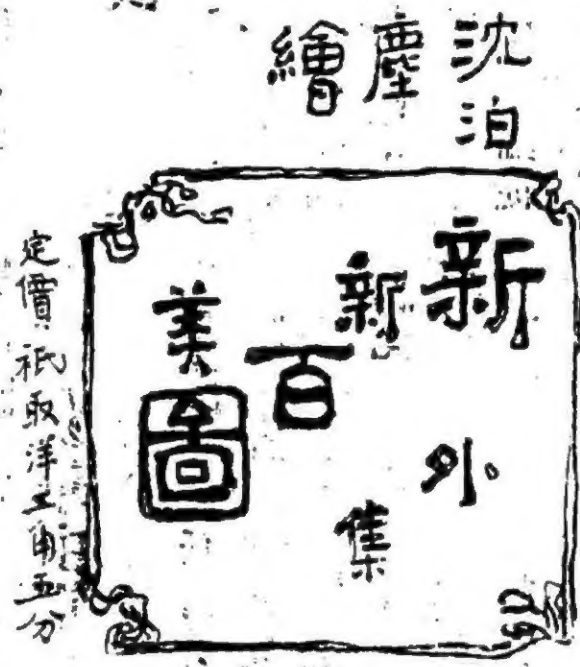 沈泊塵繪
新新百美圖
外集
定價祇取洋角五分